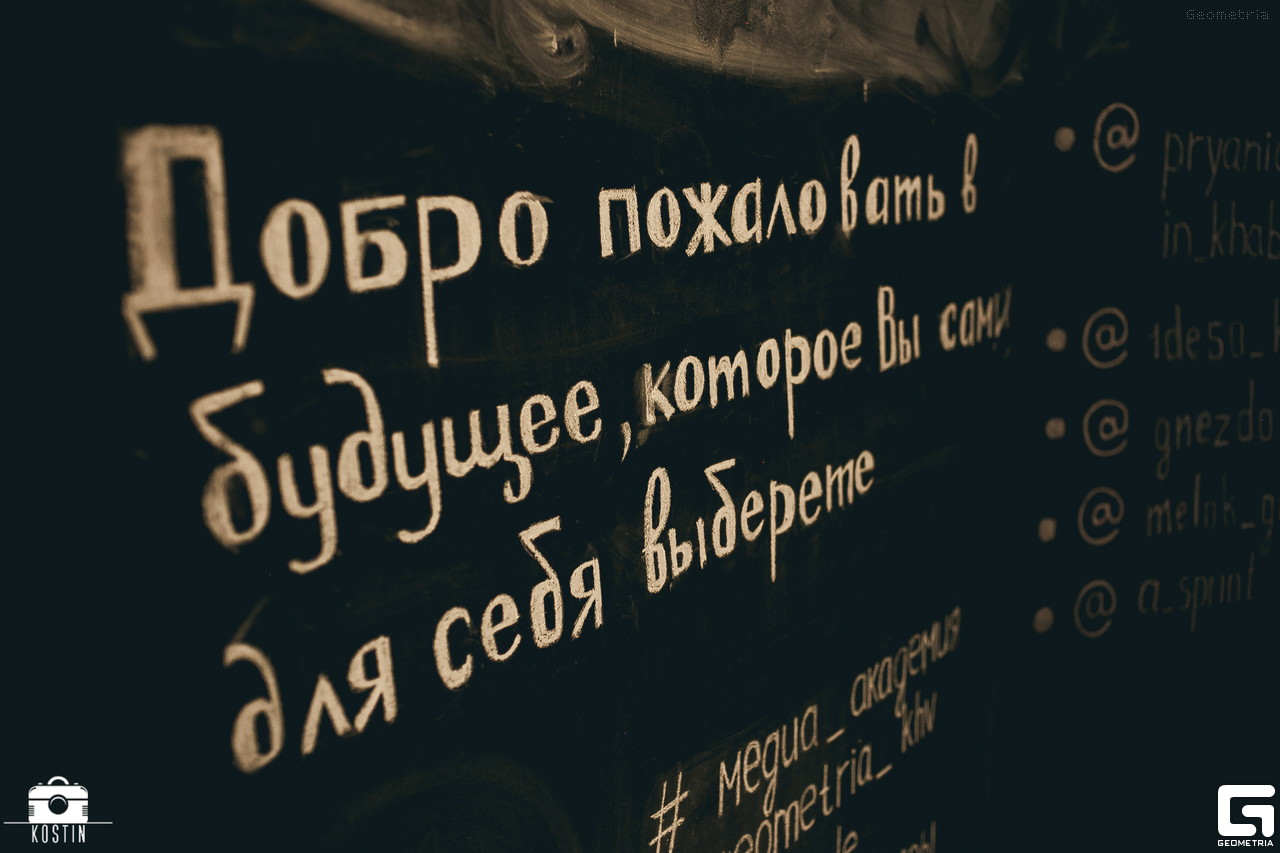 Geometria
Добро пожаловать в
будущее, которое Вы сами
для себя выберете
# медиа_академия
geometria_khv
@
in_khab
@
@
@
@ a_sprint
KOSTIN
GEOMETRIA